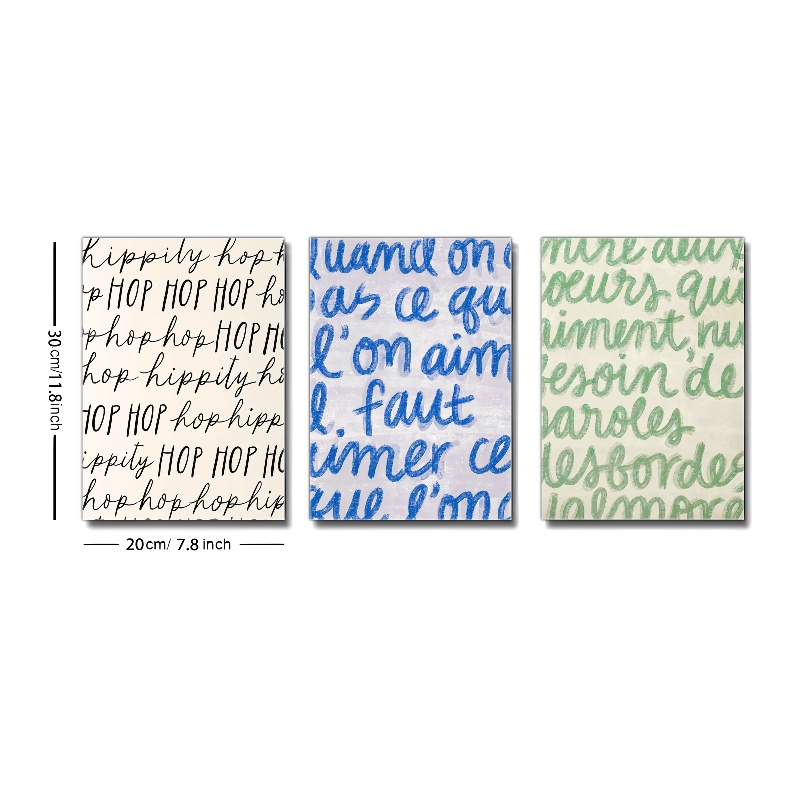 30cm/11.8inch
20cm/ 7.8 inch
hippity hop h
p HOP HOP HOP ho
phophop HOP H
hop hippity h
HOP HOP hophipp
ippity HOP HOP HO
hophophophip
Quand on
pas ce qu
l'on aim
l, faut
aimer ce
que l'on
ntre deux
coeurs qu
aiment, nu
besoin de
paroles
desbordes